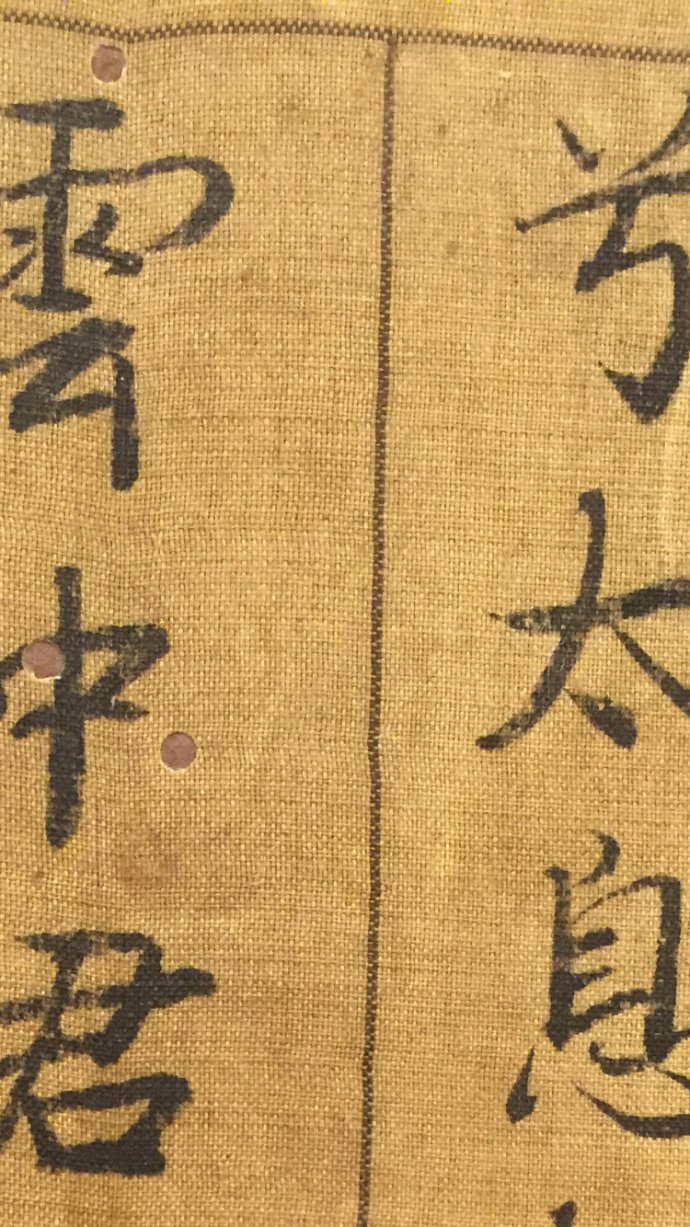 兮太息
雲中君